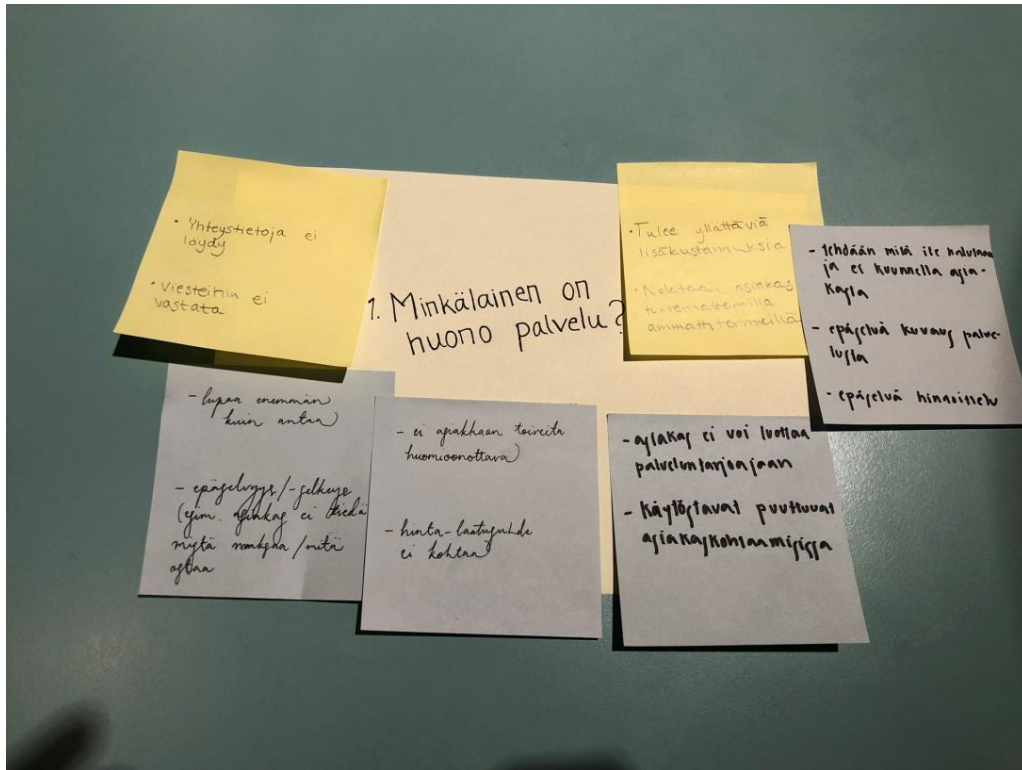 1. Minkälainen on
huono palvelu?
• Yhteystietoja ei
löydy
• Viesteihin ei
vastata
• Tulee yllättäviä
lisäkustannuksia
• Nolataan asiakas
tuntemattomilla
ammattitermeillä
- tehdään mitä ite halutaan
ja ei kuunnella asia-
kasta
- epäselvä kuvaus palve-
lusta
- epäselvä hinnoittelu
- lupaa enemmän
kuin antaa
- epäselvyys/-selkeys
(esim. asiakas ei tiedä
mitä
ostaa
- ei asiakkaan toiveita
huomioonottava
- hinta-laatusuhde
ei kohtaa
- asiakas ei voi luottaa
palveluntarjoajaan
- käytöstavat puuttuvat
asiakaskohtaamisissa